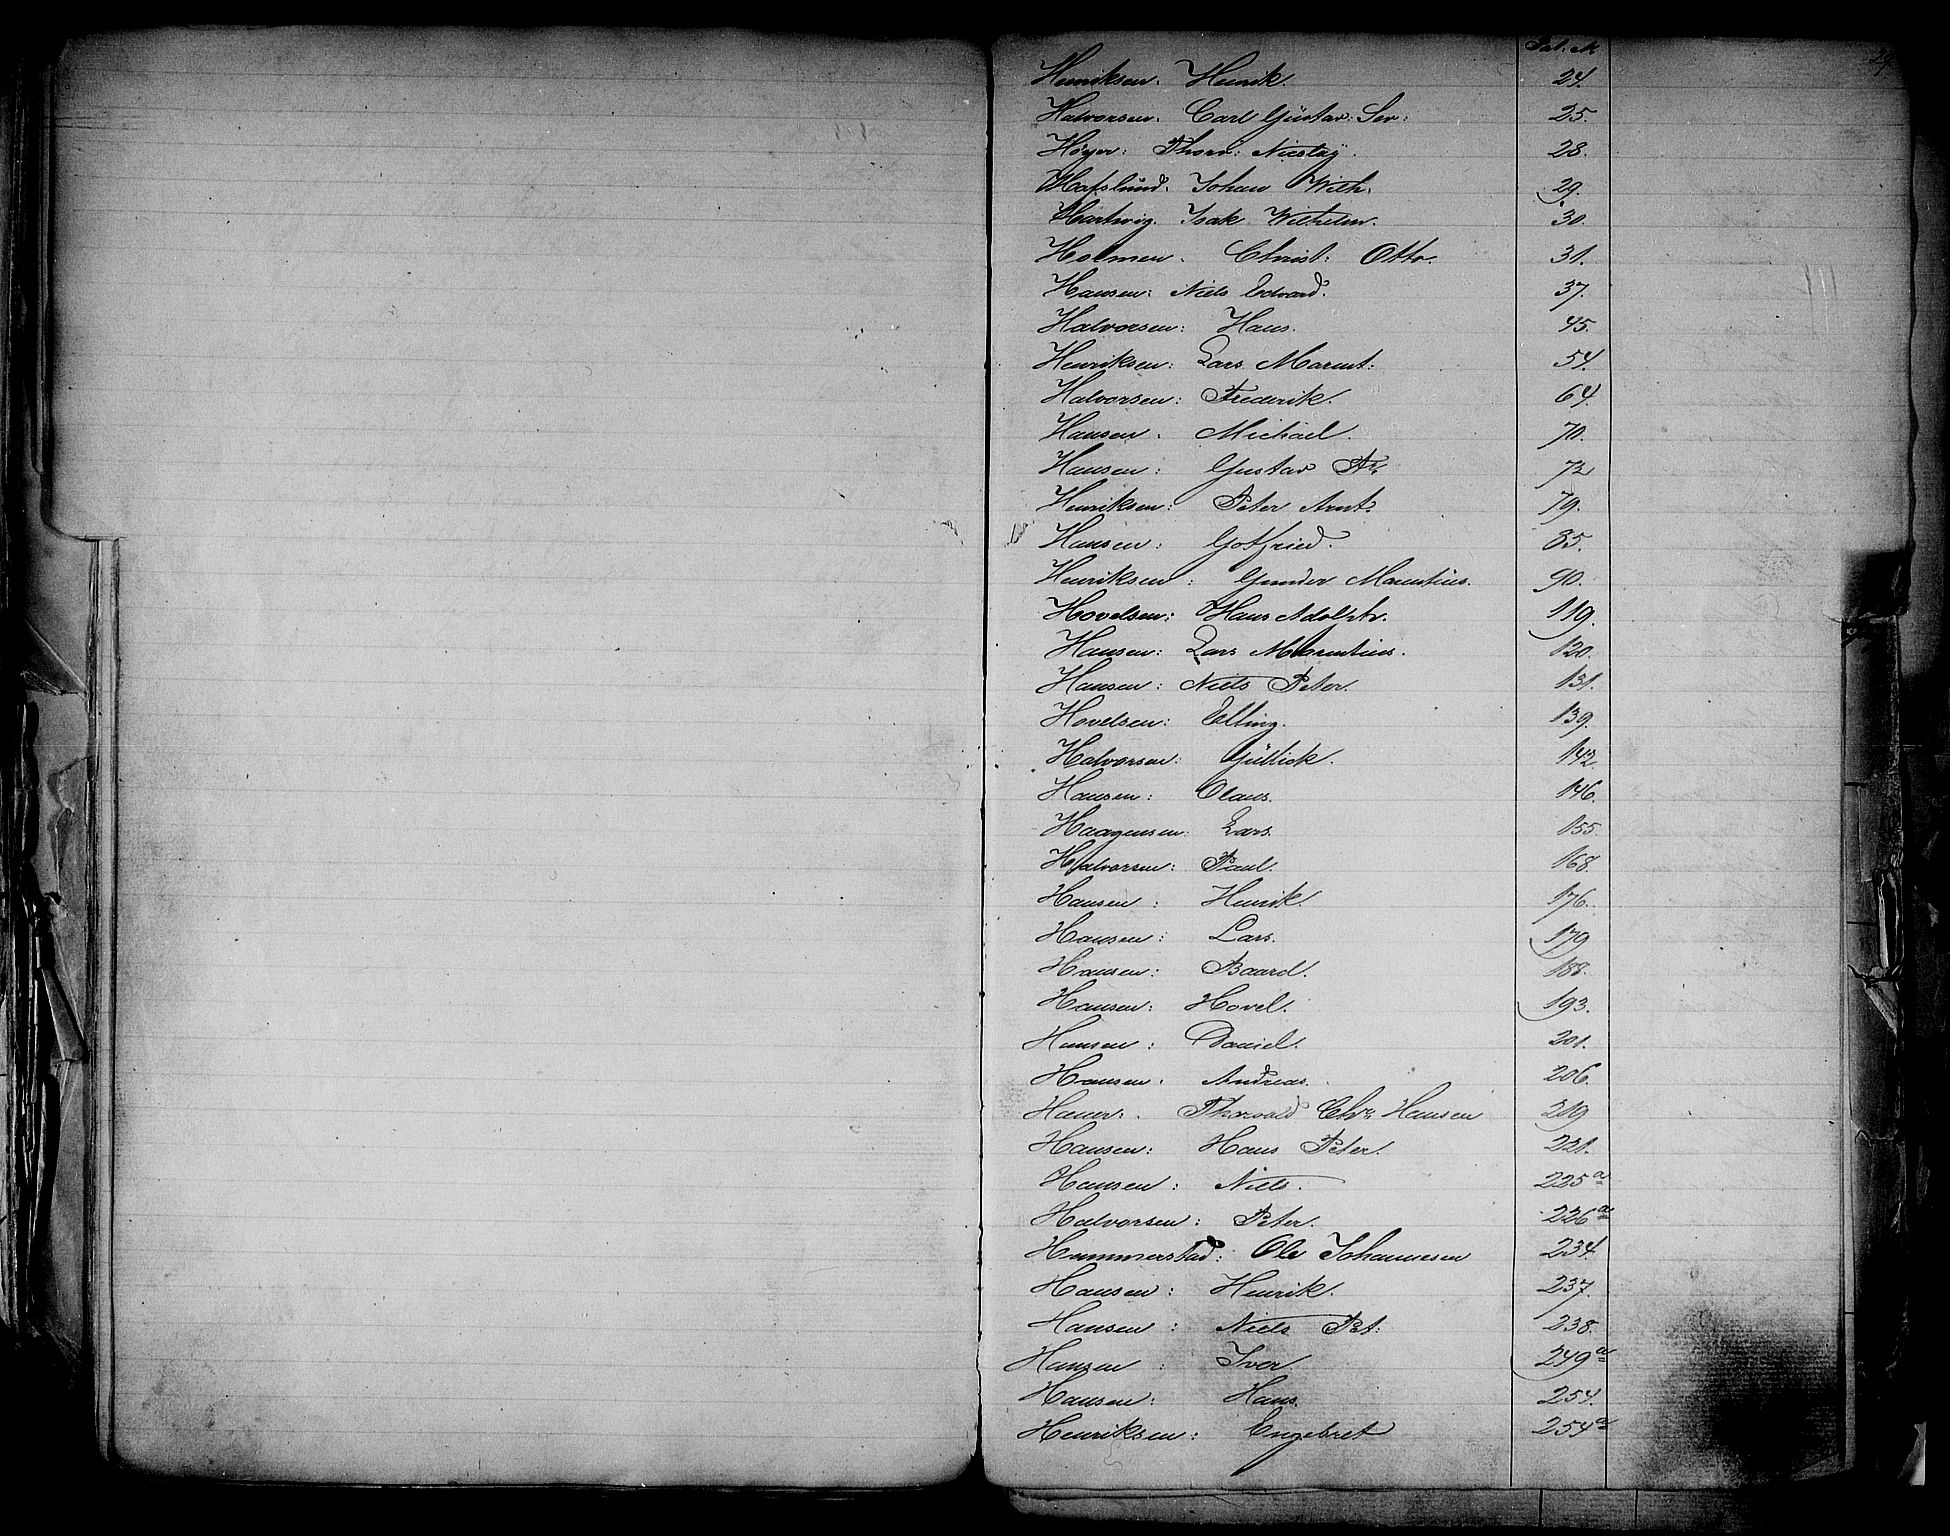 Pat. №
29
Henriksen: Henrik. 24.
Halvorsen: Carl Güstav: Sev: 25.
Høyer: Thorv: Nicolay. 28.
Hafslünd: Johan Wilh: 29.
Hartwig. Isak Wilhelm. 30.
Holmen. Christ: Otto. 31.
Hansen: Niels Edvard. 37.
Halvorsen: Hans. 45.
Henriksen: Lars Marent: 54.
Halvorsen: Frederik. 64.
Hansen: Michael. 70.
Hansen: Gustav Fr. 72
Henriksen: Peter Arnt. 79.
Hansen: Gotfried. 85.
Henriksen: Gunder Marentius. 90.
Hovelsen: Hans Adolph. 119.
Hansen: Lars Marentius. 120.
Hansen: Niels Peter. 131.
Hovelsen: Elling. 139.
Halvorsen: Güllick. 142.
Hansen: Olaus. 146.
Haagensen: Lars. 155.
Halvorsen: Paul. 168.
Hansen: Henrik. 176.
Hansen: Lars. 179
Hansen: Baard. 188.
Hansen: Hovel. 193.
Hansen: Daniel. 201.
Hansen: Andreas. 206.
Thorvald Chr. Hansen 219
Hansen: Hans Peter. 221.
Hansen: Niels. 225a
Halvorsen: Peter. 226a
Hammerstad: Ole Johannesen 234.
Hansen: Henrik. 237.
Hansen: Niels Pet: 238.
Hansen: Iver 249a
Hansen: Hans. 254.
Henriksen: Engebret 254a